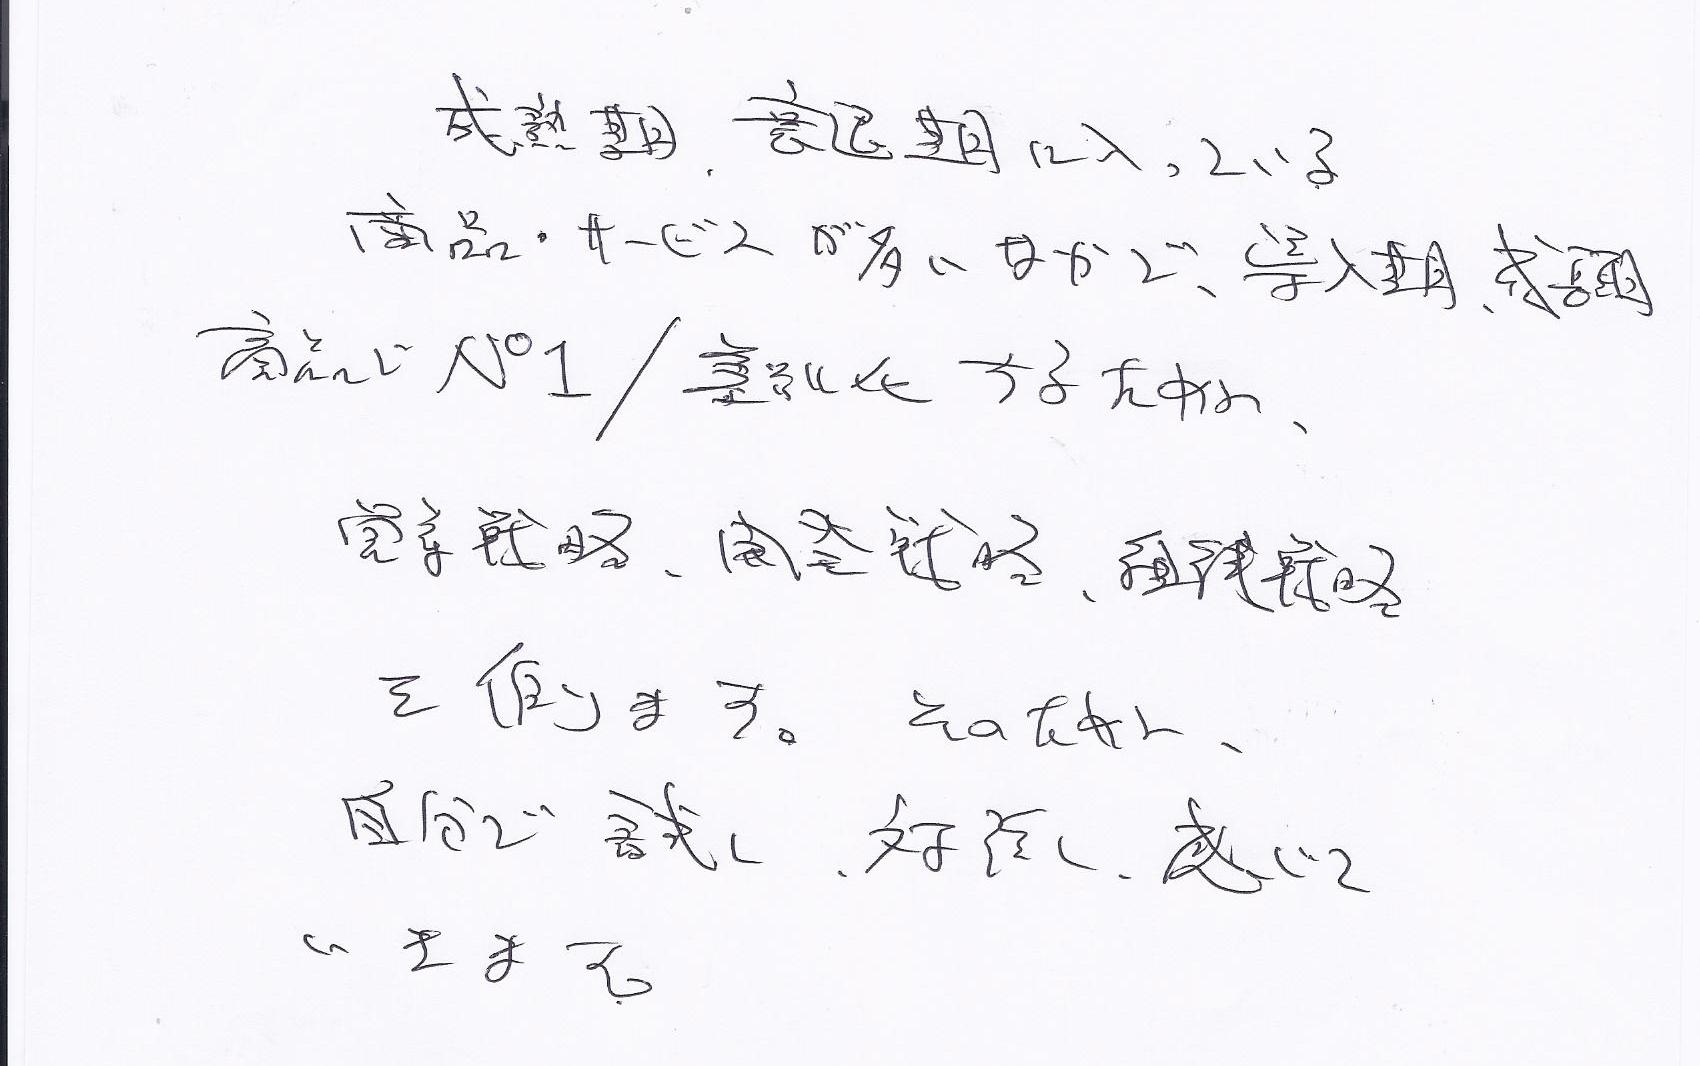 成熟期、衰退期に入っている
商品・サービスが多いなかで、導入期、成長期
商品でNo1/差別化するために、
営業戦略、商品戦略、組織戦略
を作ります。そのために、
自分で試し、好転し、感じて
いきます。